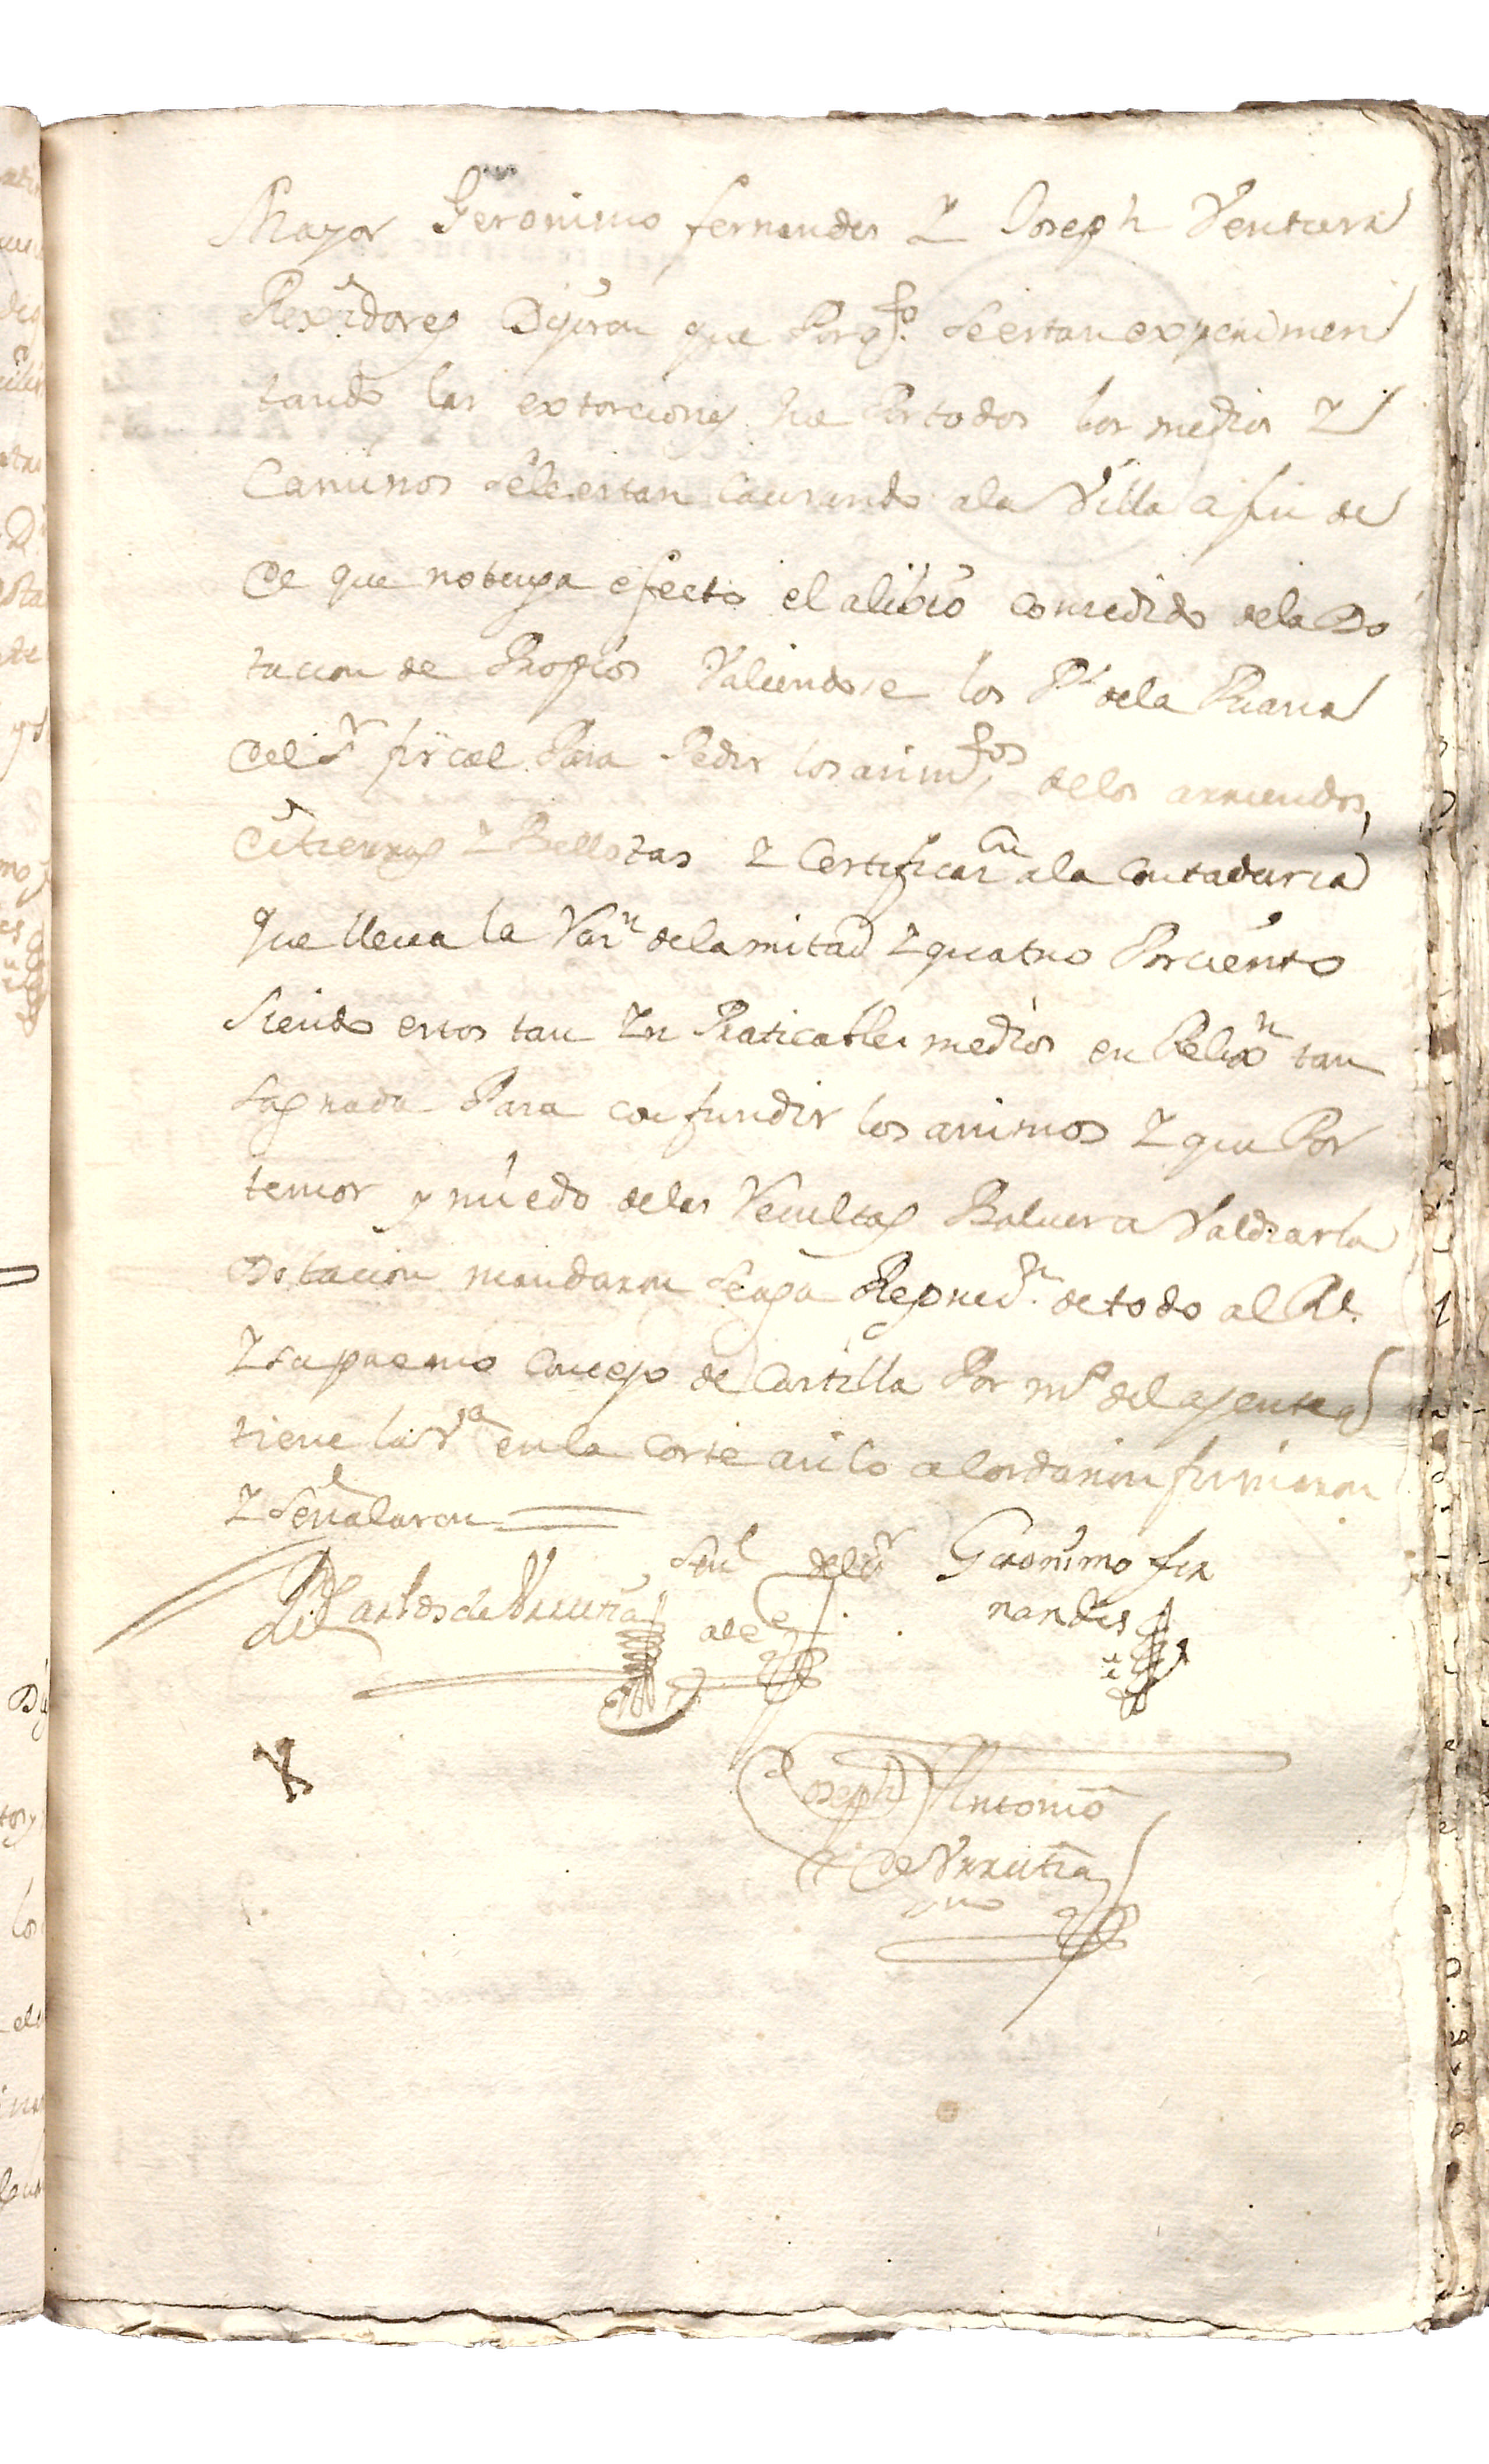 Mayor Geronimo fernandes Y Joseph Ventura
Rexidores Dijeron que Por qto. se estan experimen
tando las extorciones que Por todos los medios Y
Caminos se le estan Causando a la Villa a fin de
de que no tenga efecto el alibio consedido de la Do
tacion de Propios Valiendose los Ps de la Puana
del Sr fiscal Para Pedir los arim.tos de los arriendos,
de tierras Y Bellotas Y Certificaon a la Contaduria
que lleva la Von de la mitad Y quatro Por ciento
Siendo estos tan Yn Praticables medios en Relixn tan
sagrada Para confundir los animos Y que Por
temor y miedo de las Vecultas Bolviera Valdiar la
Dotacion mandaron se aga Repren.on de todo al Rl.
Y supremo Concejo de Castilla Por mo del agente q
tiene la Va en la Corte asi lo acordaron firmaron
Y señalaron
Dn Carlos de Urrutia señl del sr Geronimo fer
alce nandes
Joseph Antonio
de Urrutia